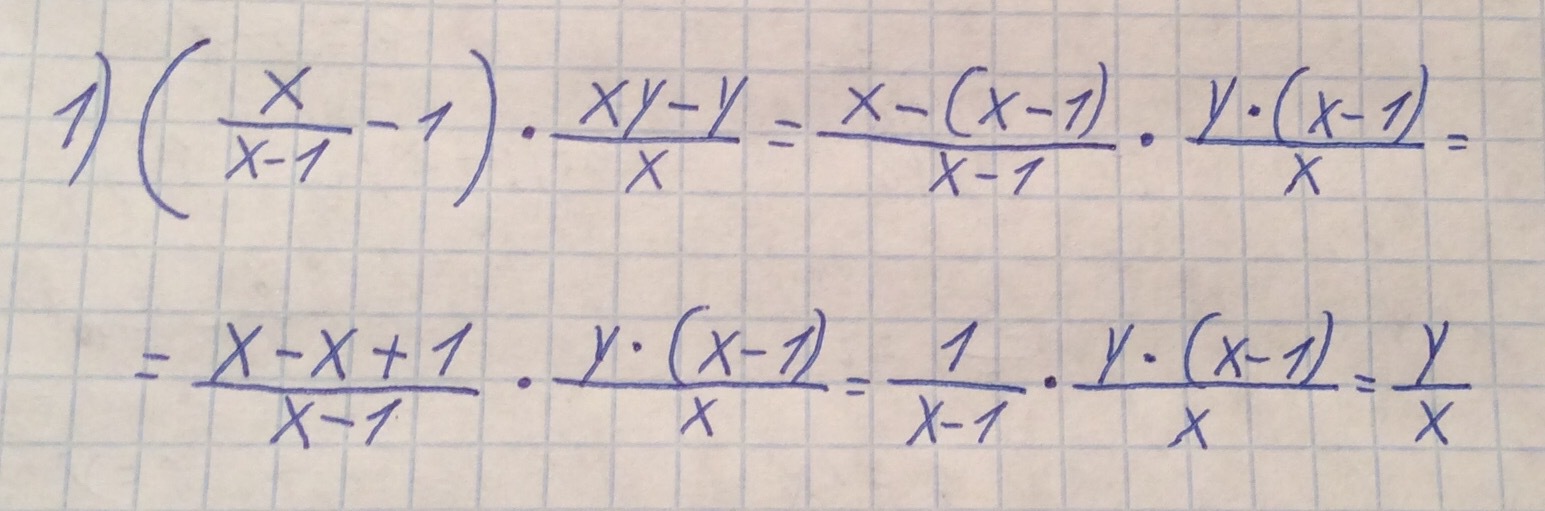 1) (x/(x-1) - 1) · (xy-y)/x = (x-(x-1))/(x-1) · (y·(x-1))/x =
= (x-x+1)/(x-1) · (y·(x-1))/x = 1/(x-1) · (y·(x-1))/x = y/x